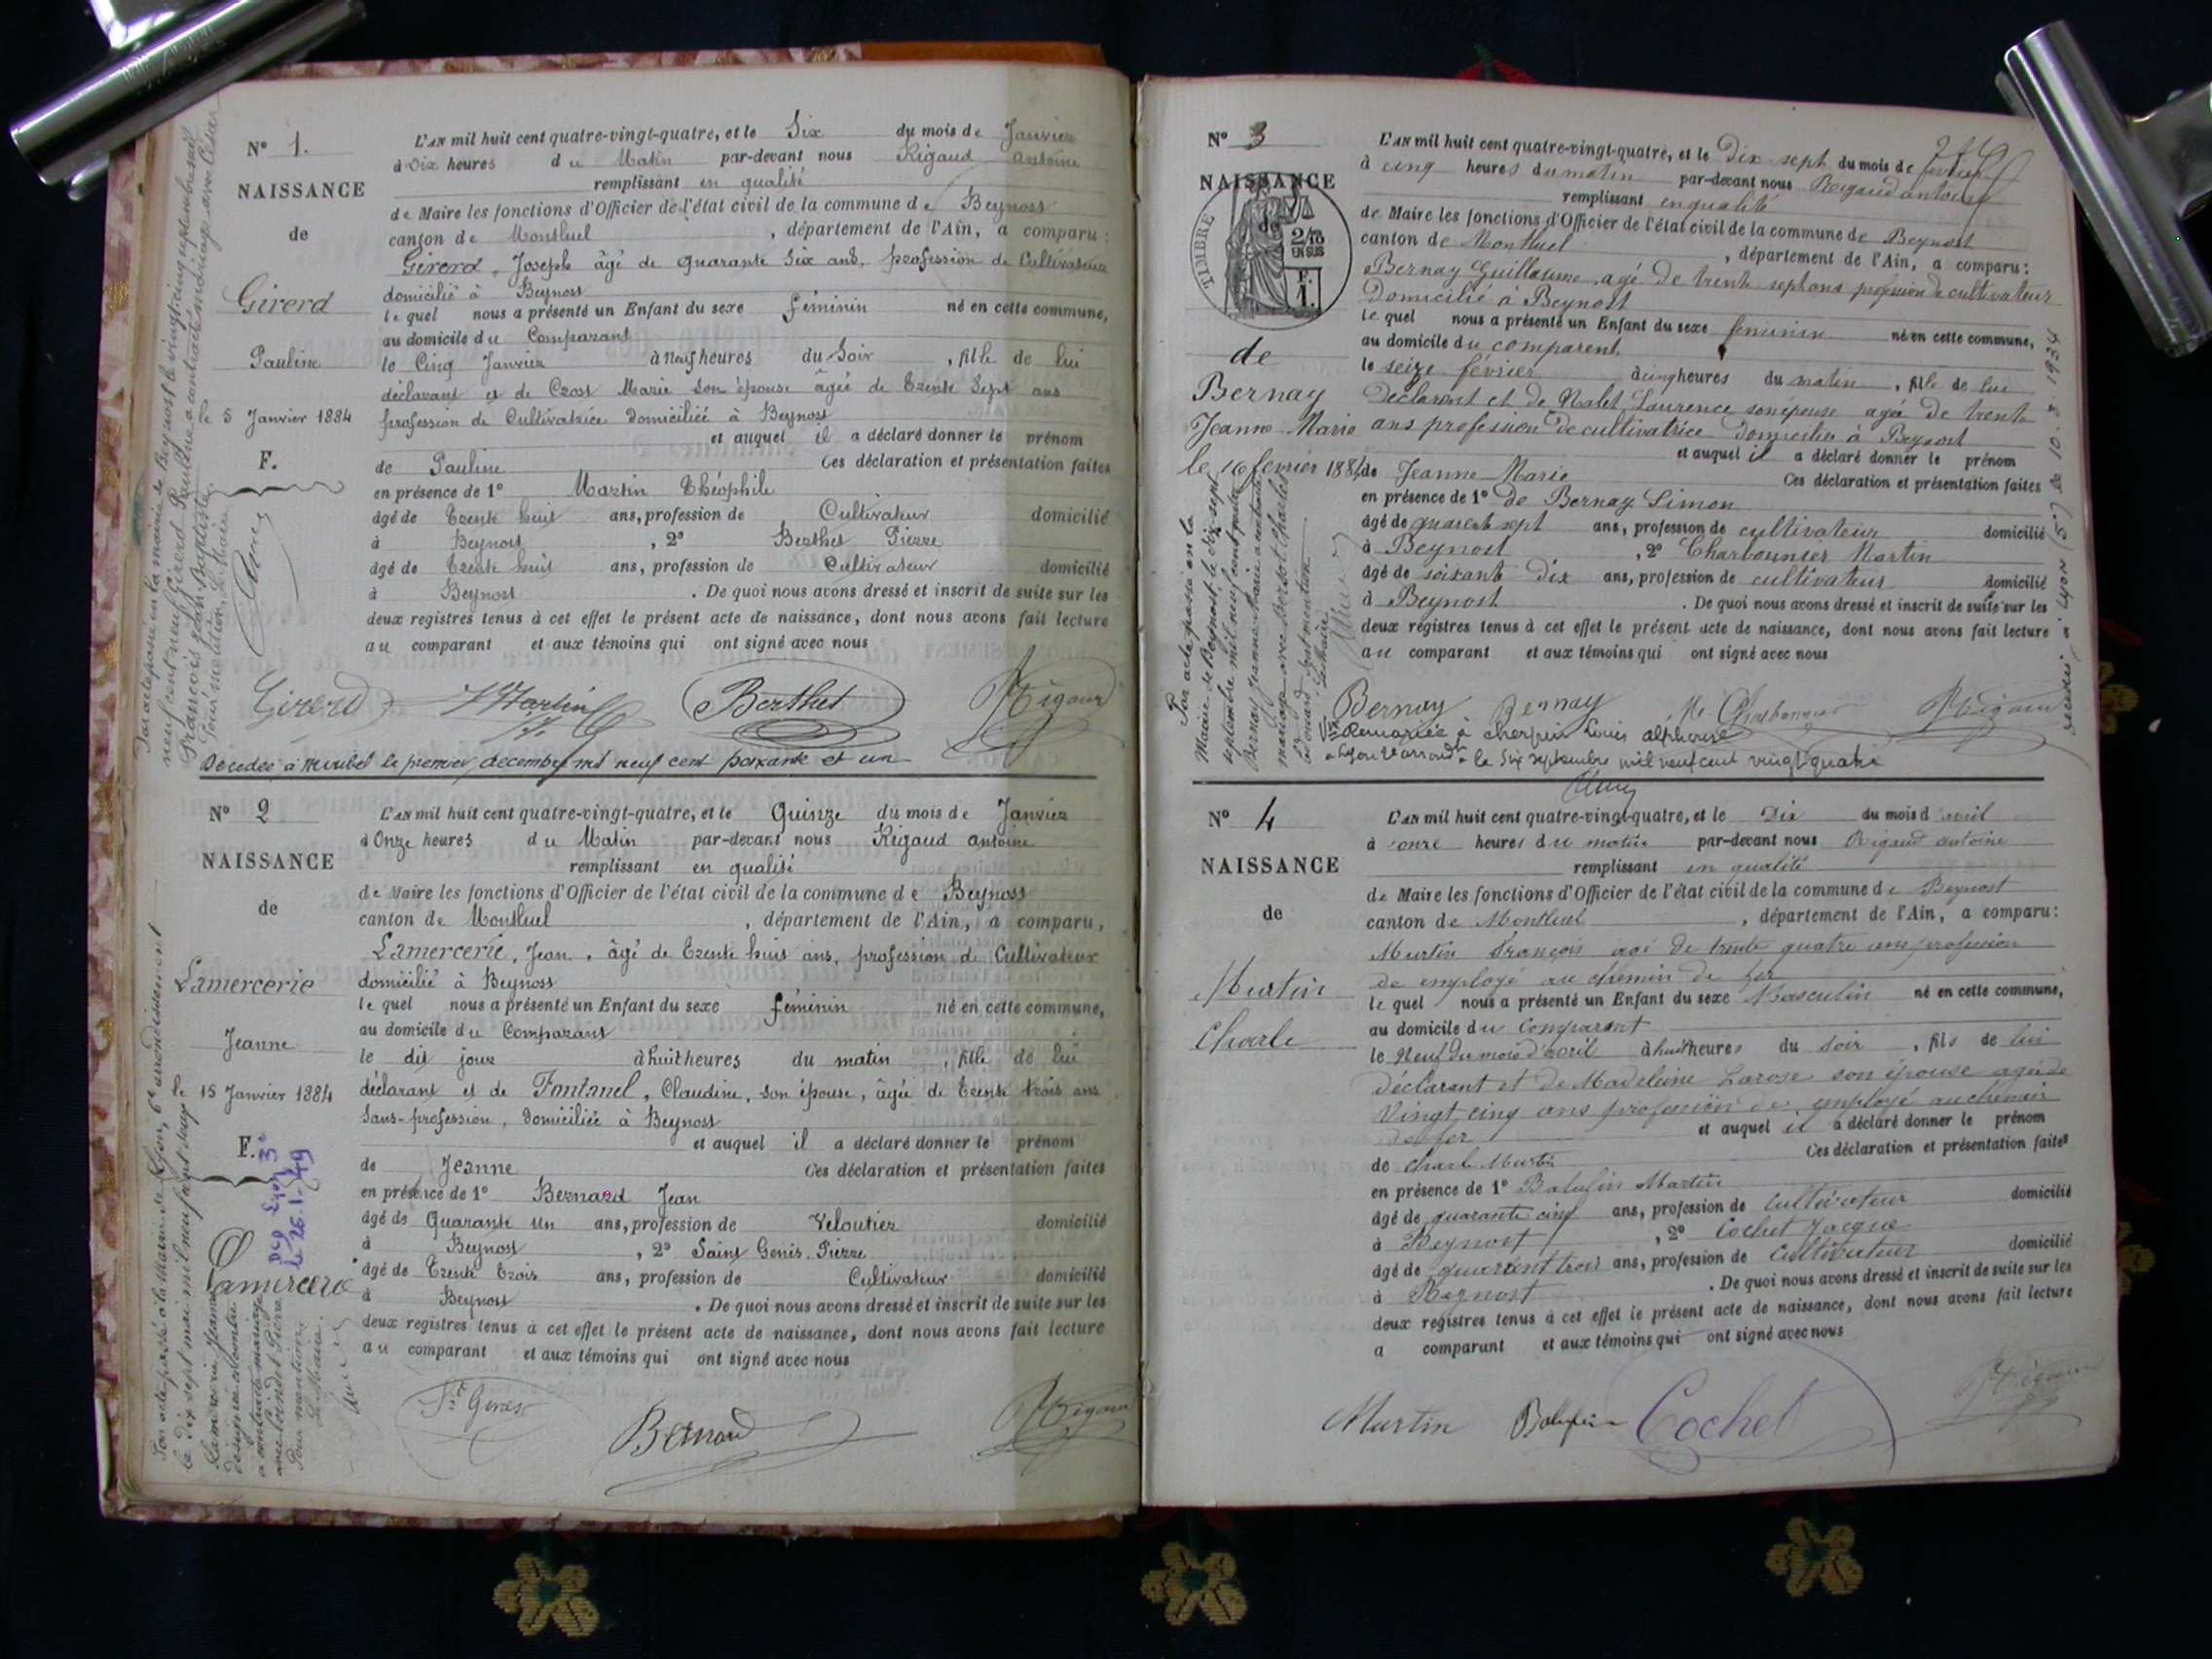 N° 1.
NAISSANCE
de
Girerd
Pauline
le 5 Janvier 1884
F.
L'AN mil huit cent quatre-vingt-quatre, et le Six du mois de Janvier
à Dix heures du Matin par-devant nous Rigaud antoine
remplissant en qualité
de Maire les fonctions d'Officier de l'état civil de la commune de Beynost
canton de Montluel, département de l'Ain, a comparu :
Girerd, Joseph âgé de quarante Six ans, profession de Cultivateur
domicilié à Beynost
lequel nous a présenté un Enfant du sexe féminin né en cette commune,
au domicile du Comparant
le Cinq Janvier à Neuf heures du Soir, fille de lui
déclarant et de Crost Marie Son épouse âgée de Trente Sept ans
profession de Cultivatrice domiciliée à Beynost
et auquel il a déclaré donner le prénom
de Pauline Ces déclaration et présentation faites
en présence de 1° Martin Théophile
âgé de Trente huit ans, profession de Cultivateur domicilié
à Beynost, 2° Berthet Pierre
âgé de Trente huit ans, profession de Cultivateur domicilié
à Beynost. De quoi nous avons dressé et inscrit de suite sur les
deux registres tenus à cet effet le présent acte de naissance, dont nous avons fait lecture
au comparant et aux témoins qui ont signé avec nous
Girerd Martin Berthet Rigaud
Décédée à Miribel le premier décembre mil neuf cent soixante et un
Par acte passé en la mairie de Beynost le vingt cinq septembre mil
neuf cent neuf Girerd Pauline a contracté mariage avec César
François Jean-Baptiste
Pour mention, Le Maire
N° 2
NAISSANCE
de
Lamercerie
Jeanne
le 15 Janvier 1884
F.
Dcg Lyon 3e
le 26.1.49
L'AN mil huit cent quatre-vingt-quatre, et le Quinze du mois de Janvier
à Onze heures du Matin par-devant nous Rigaud antoine
remplissant en qualité
de Maire les fonctions d'Officier de l'état civil de la commune de Beynost
canton de Montluel, département de l'Ain, a comparu,
Lamercerie, Jean, âgé de Trente huit ans, profession de Cultivateur
domicilié à Beynost
lequel nous a présenté un Enfant du sexe féminin né en cette commune,
au domicile du Comparant
le dit jour à huit heures du matin, fille de lui
déclarant et de Fontanel, Claudine, son épouse, âgée de Trente trois ans
Sans-profession, domiciliée à Beynost
et auquel il a déclaré donner le prénom
de Jeanne Ces déclaration et présentation faites
en présence de 1° Bernard Jean
âgé de Quarante Un ans, profession de Veloutier domicilié
à Beynost, 2° Saint Genis, Pierre
âgé de Trente Trois ans, profession de Cultivateur domicilié
à Beynost. De quoi nous avons dressé et inscrit de suite sur les
deux registres tenus à cet effet le présent acte de naissance, dont nous avons fait lecture
au comparant et aux témoins qui ont signé avec nous
Lamercerie
St Genis Bernard Rigaud
Par acte passé à la Mairie de Lyon, 6e arrondissement
le dix sept mai mil neuf cent
Lamercerie Jeanne
a contracté mariage
Pour mention,
Le Maire
N° 3
NAISSANCE
TIMBRE
2/10
EN SUS
F.
1.
de
Bernay
Jeanne Marie
le 16 fevrier 1884
L'AN mil huit cent quatre-vingt-quatre, et le Dix sept du mois de fevrier
à cinq heures du matin par-devant nous Rigaud antoine
remplissant en qualité
de Maire les fonctions d'Officier de l'état civil de la commune de Beynost
canton de Montluel, département de l'Ain, a comparu :
Bernay Guillaume, agé de trente sept ans profession de cultivateur
Domicilié à Beynost
lequel nous a présenté un Enfant du sexe feminin né en cette commune,
au domicile du comparent.
le seize février à cinq heures du matin, fille de lui
Déclarent et de Nalet Laurence son épouse agée de trente
ans profession de cultivatrice domiciliée à Beynost
et auquel il a déclaré donner le prénom
de Jeanne Marie Ces déclaration et présentation faites
en présence de 1° de Bernay Simon
âgé de quarent sept ans, profession de cultivateur domicilié
à Beynost, 2° Charbonnier Martin
âgé de soixante Dix ans, profession de cultivateur domicilié
à Beynost. De quoi nous avons dressé et inscrit de suite sur les
deux registres tenus à cet effet le présent acte de naissance, dont nous avons fait lecture
au comparant et aux témoins qui ont signé avec nous
Bernay Bernay M. Charbonnier Rigaud
Vve Remariée à cherpin Louis alphonse
à Lyon arrondt le Six septembre mil neuf cent vingt quatre
Par acte passé en la
Mairie de Beynost, le dix-sept
septembre mil neuf cent quatre
Bernay Jeanne Marie a contracté
mariage avec Charles
Edouard. Dont mention
Le Maire
à Lyon (5e) le 10.3.1934
N° 4
NAISSANCE
de
Martin
Charle
L'AN mil huit cent quatre-vingt-quatre, et le Dix du mois d'avril
à onze heures du matin par-devant nous Rigaud antoine
remplissant en qualité
de Maire les fonctions d'Officier de l'état civil de la commune de Beynost
canton de Montluel, département de l'Ain, a comparu :
Martin François agé de trente quatre ans profession
de employé au chemin de fer
lequel nous a présenté un Enfant du sexe Masculin né en cette commune,
au domicile du Comparant
le Neuf du mois d'avril à huit heures du Soir, fils de lui
déclarant et de Madeleine Larose son épouse agée de
Vingt cinq ans profession de employé au chemin
de fer et auquel il a déclaré donner le prénom
de charle Martin Ces déclaration et présentation faites
en présence de 1° Balufin Martin
âgé de quarante cinq ans, profession de Cultivateur domicilié
à Beynost, 2° Cochet Jacque
âgé de quarent trois ans, profession de Cultivateur domicilié
à Beynost. De quoi nous avons dressé et inscrit de suite sur les
deux registres tenus à cet effet le présent acte de naissance, dont nous avons fait lecture
a comparant et aux témoins qui ont signé avec nous
Martin Balufin Cochet Rigaud